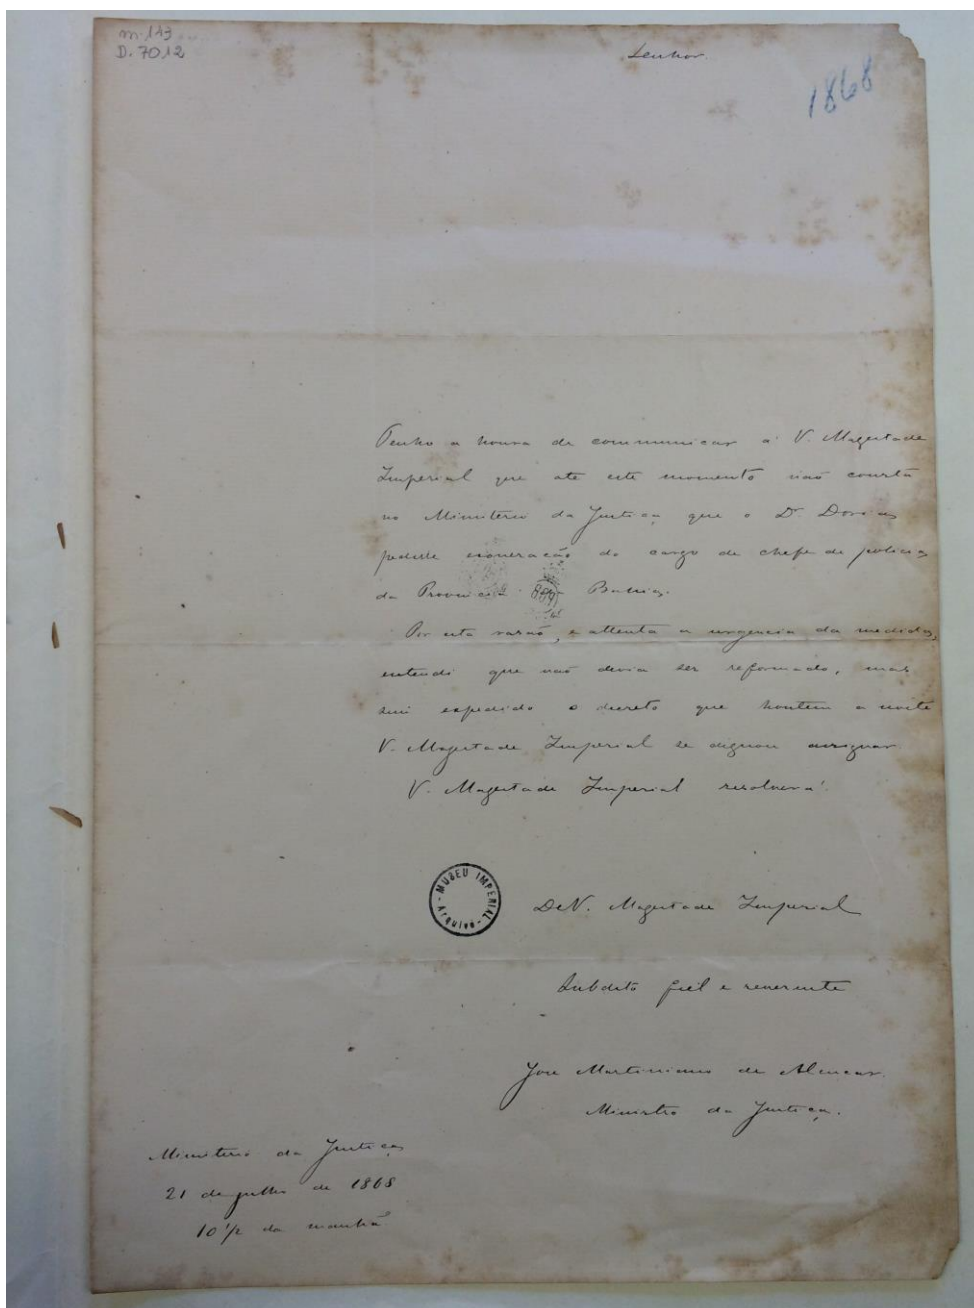 m. 143
D. 7012
Senhor.
1868
Tenho a honra de communicar a V. Magestade
Imperial que até este momento não consta
no Ministerio da Justiça que o Dr. Doria
pedisse exoneração do cargo de chefe de policia
da Provincia da Bahia.
Por esta rasão, e attenta a urgencia da medida,
entendi que não devia ser reformado, mas
sim expedido o decreto que hontem a noite
V. Magestade Imperial se dignou assignar.
V. Magestade Imperial resolverá.
MUSEU IMPERIAL
- Arquivo -
De V. Magestade Imperial
Subdito fiel e reverente
José Martiniano de Alencar.
Ministro da Justiça.
Ministerio da Justiça
21 de julho de 1868
10 1/2 da manhã